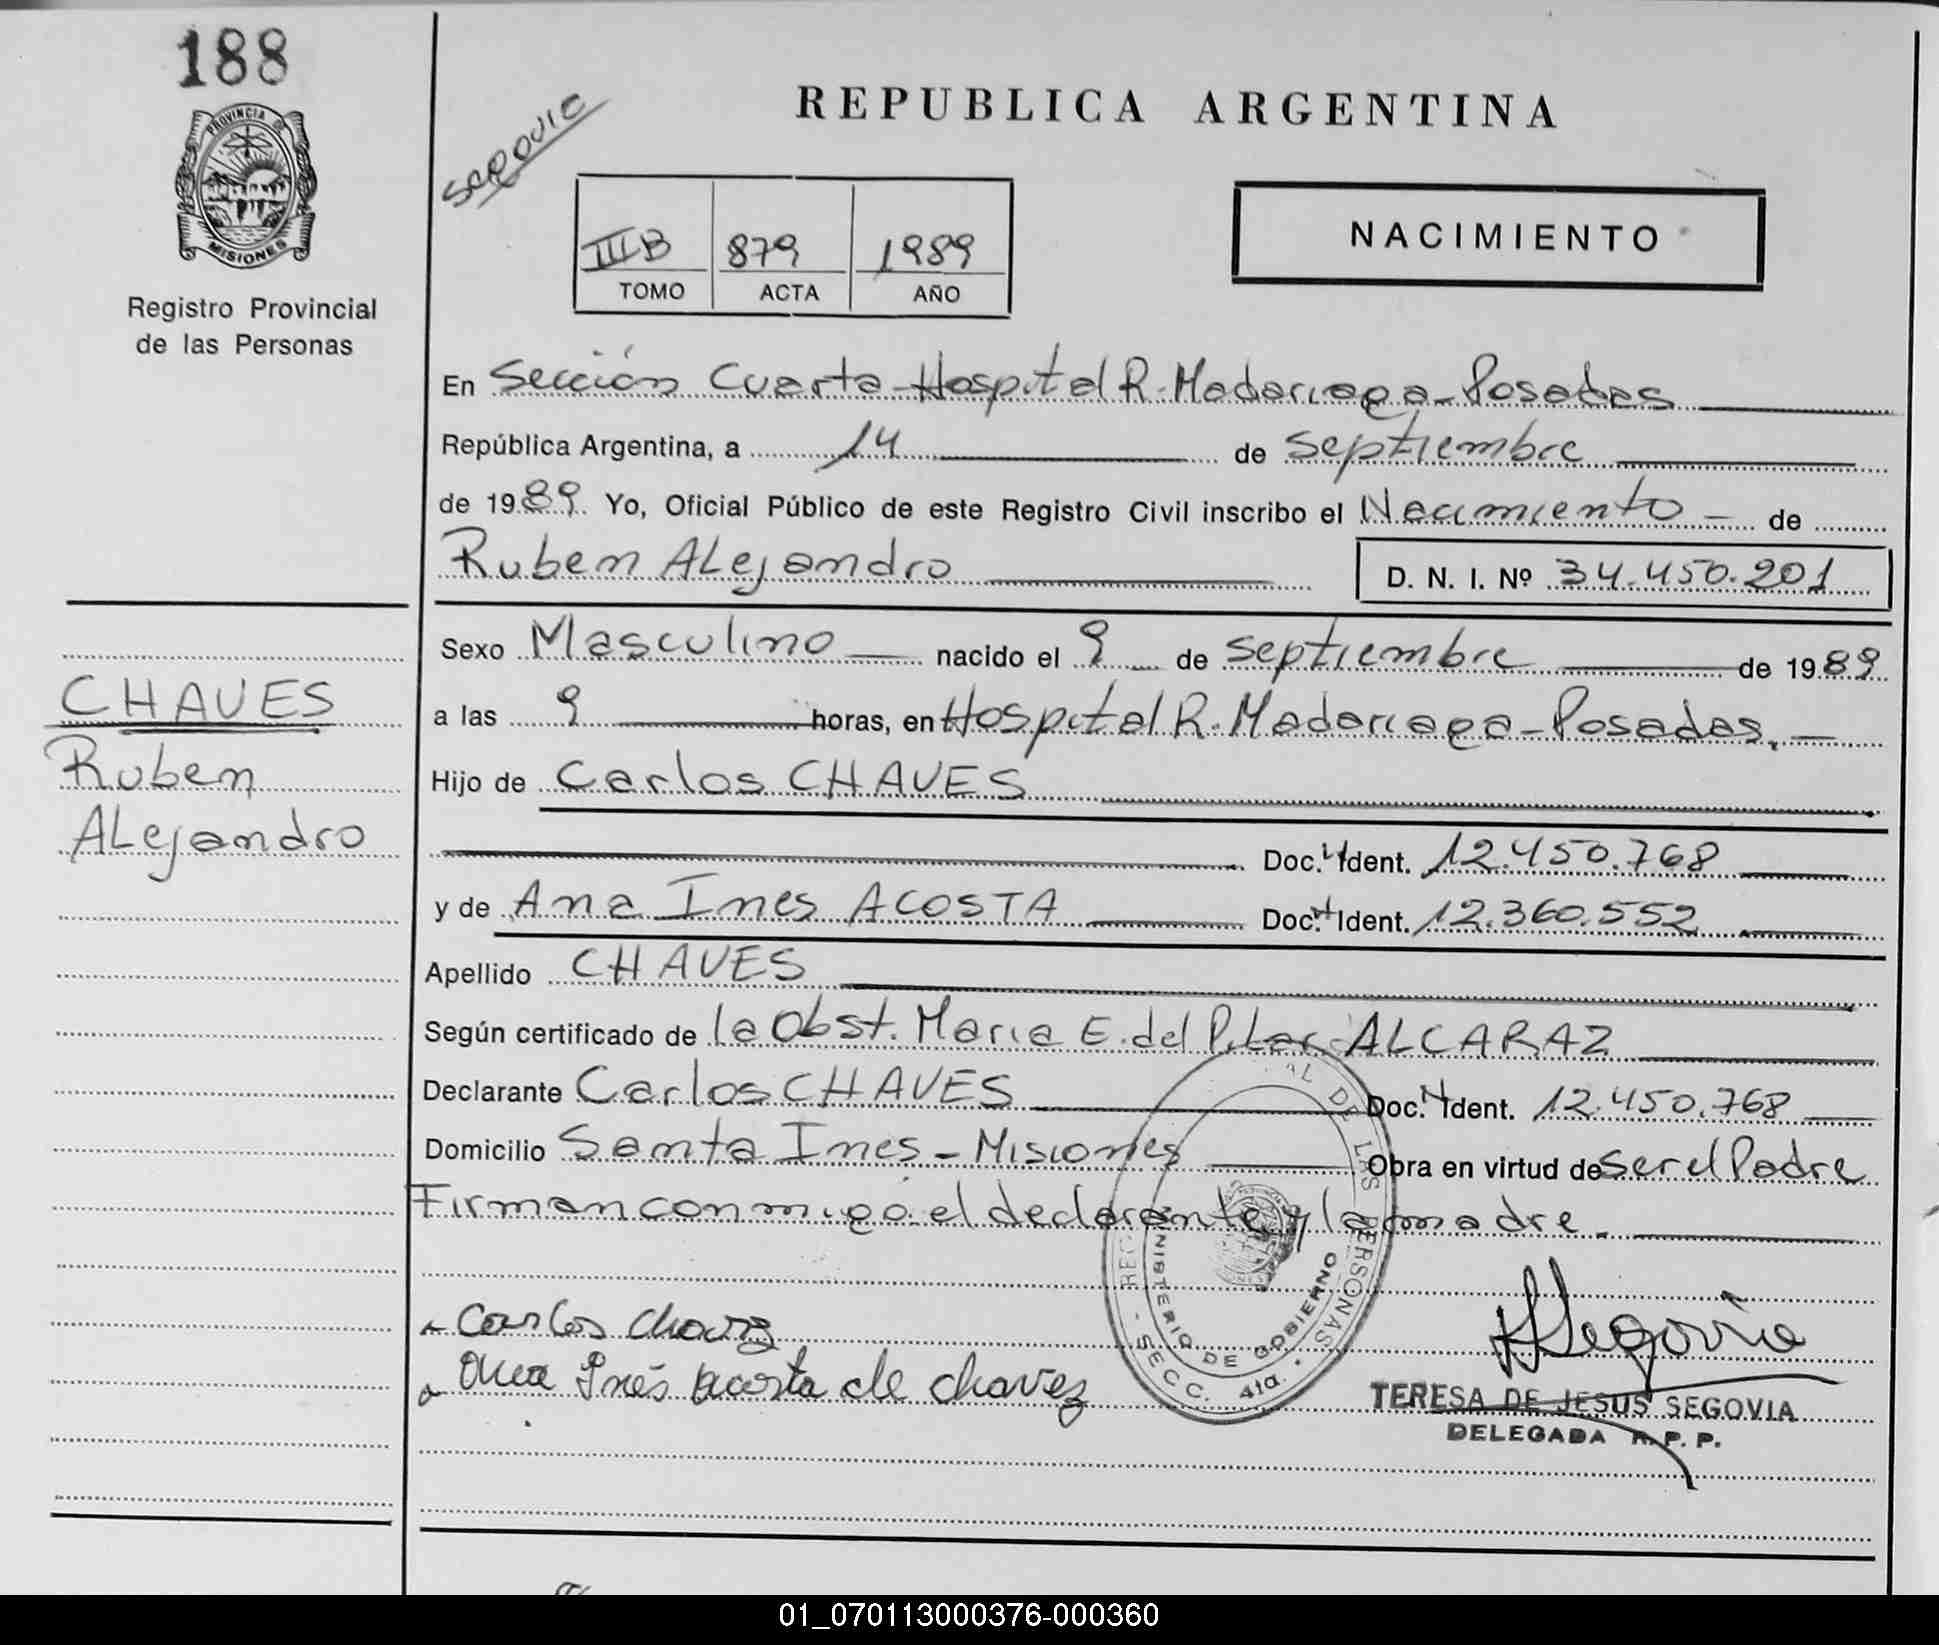 188
PROVINCIA DE
MISIONES
Registro Provincial
de las Personas
CHAVES
Ruben
ALejandro
REPUBLICA ARGENTINA
IIIB 879 1989
TOMO ACTA AÑO
NACIMIENTO
En Sección Cuarta-Hospital R. Madariaga-Posadas
República Argentina, a 14 de septiembre
de 1989 Yo, Oficial Público de este Registro Civil inscribo el Nacimiento de
Ruben ALejandro D. N. I. Nº 34.450.201
Sexo Masculino nacido el 9 de septiembre de 1989
a las 9 horas, en Hospital R. Madariaga-Posadas.
Hijo de Carlos CHAVES
Doc. Ident. 12.450.768
y de Ana Ines ACOSTA Doc. Ident. 12.360.552
Apellido CHAVES
Según certificado de la Obst. Maria E. del Pilar ALCARAZ
Declarante Carlos CHAVES Doc. Ident. 12.450.768
Domicilio Santa Ines - Misiones Obra en virtud de ser el Padre
Firman conmigo el declarante y la madre.
Carlos Chavez
Ana Inés Acosta de Chavez
AL DE LAS PERSONAS
MINISTERIO DE GOBIERNO
SECC. 4ta.
Segovia
TERESA DE JESUS SEGOVIA
DELEGADA R. P. P.
01_070113000376-000360